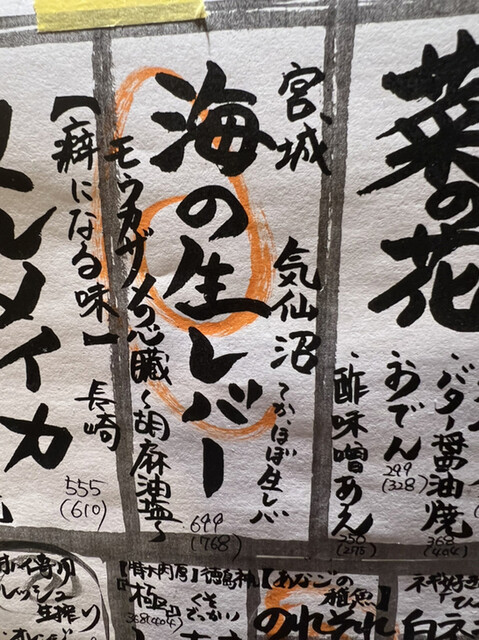 菜の花
・バター醤油焼
368
(404)
・おでん
299
(328)
・酢味噌あえ
250
(275)
宮城
気仙沼
てか、ほぼ生レバ
海の生レバー
699
(768)
モウカザメの心臓〜胡麻油塩〜
スルメイカ
【癖になる味】
長崎
555
(610)
【あなごの
稚魚】
のれそれ
【特大肉厚】
徳島神山
368(404)
生搾り